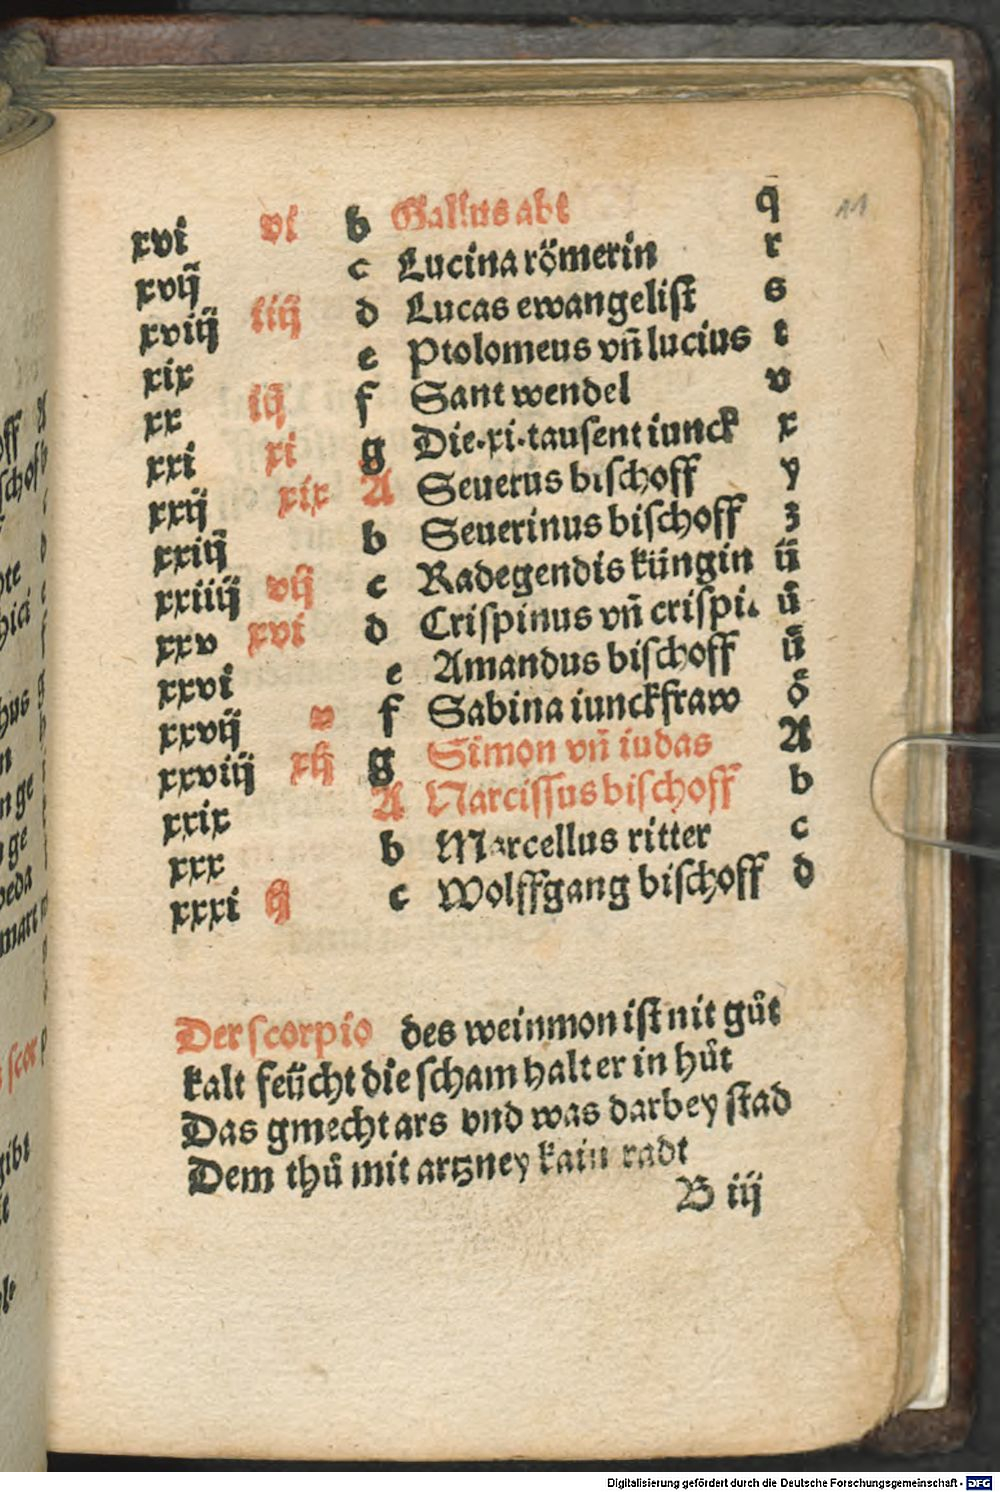 11
xvi vi b Gallus abt q
xvij c Lucina römerin r
xviij iiij d Lucas ewangelist s
xix e Ptolomeus vñ lucius t
xx iij f Sant wendel v
xxi xi g Die·xi·tausent iunck x
xxij xix A Seuerus bischoff y
xxiij b Seuerinus bischoff z
xxiiij vij c Radegendis küngin ü
xxv xvi d Crispinus vñ crispi. ů
xxvi e Amandus bischoff ű
xxvij v f Sabina iunckfraw ö
xxviij xij g Simon vñ iudas A
xxix A Narcissus bischoff b
xxx b Marcellus ritter c
xxxi ij c Wolffgang bischoff d
Der scorpio des weinmon ist nit gůt
kalt feücht die scham halt er in hůt
Das gmecht ars vnd was darbey stad
Dem thů mit artzney kain radt
B iij
Digitalisierung gefördert durch die Deutsche Forschungsgemeinschaft - DFG